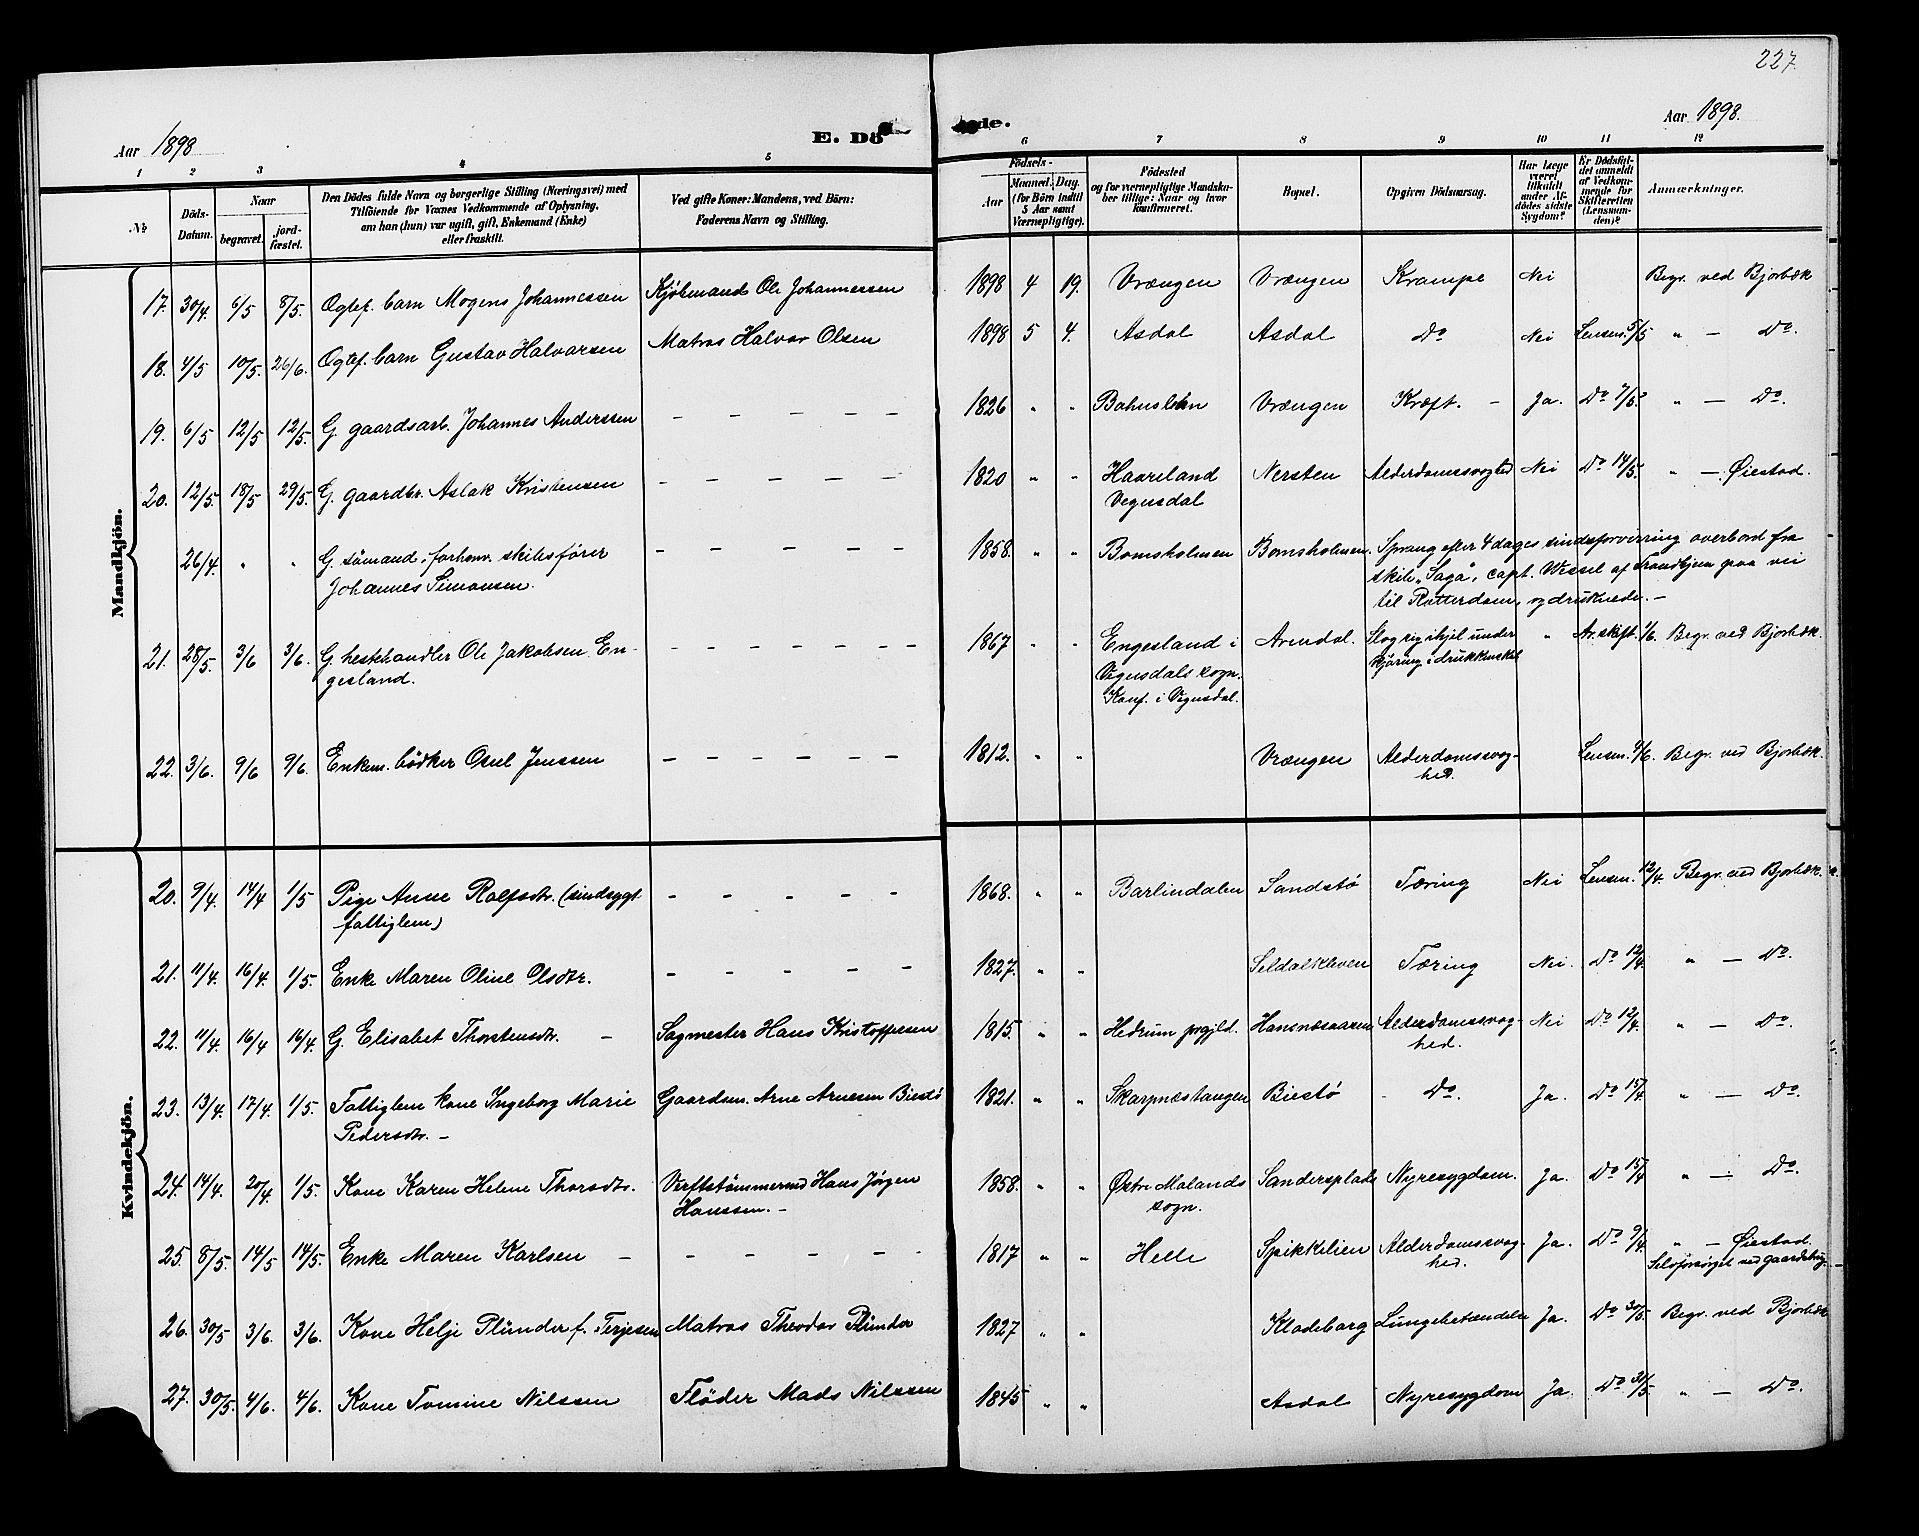 227.
Aar 1898
E. Dö
de.
Aar 1898.
1 2 3 4 5 6 7 8 9 10 11 12
№
Döds-
Datum.
Naar
begravet.
jord-
fæstet.
Den Dödes fulde Navn og borgerlige Stilling (Næringsvei) med
Tilföiende for Voxnes Vedkommende af Oplysning,
om han (hun) var ugift, gift, Enkemand (Enke)
eller fraskilt.
Ved gifte Koner: Mandens, ved Börn:
Faderens Navn og Stilling.
Födsels-
Aar
Maaned. Dag.
(for Börn indtil
5 Aar samt
Værnepligtige).
Födested
og for værnepligtige Mandska-
ber tillige: Naar og hvor
konfirmeret.
Bopæl.
Opgiven Dödsaarsag.
Har læge
været
tilkaldt
under Af-
dödes sidste
Sygdom?
Er Dödsfal-
det anmeldt
af Vedkom-
mende for
Skifteretten
(Lensman-
den)?
Anmærkninger.
Mandkjön.
17. 30/4. 6/5 8/5. Ogtef. barn Mogens Johannessen Kjøbmand Ole Johannessen 1898 4 19. Vrængen Vrængen Krampe Nei Begr. ved Bjorbæk
18. 4/5 10/5. 26/6. Ogtef. barn Gustav Halvorsen Matros Halvor Olsen 1898 5 4. Asdal Asdal Do Nei Lensm. 5/5 " — Do.
19. 6/5 12/5 12/5. G. gaardsarb. Johannes Anderssen — — — — — 1826 " " Bohuslehn Vrængen Kræft. — Ja. Do 7/5. " — Do.
20. 12/5. 18/5 29/5. G. gaardbr. Aslak Kristensen — — — — — 1820 " " Haareland Nersten Alderdomssvaghed Nei Do 14/5. " — Øiestad.
Vegusdal
26/4. " " G. sømand, forhenv. skibsfører — — — — — 1858. " " Bomsholmen Bomsholmen. Sprang efter 4 dages sindsforvirring overbord fra
Johannes Simonsen. skib "Saga", capt. Wessel af Trondhjem paa vei
til Rotterdam, og druknede. —
21. 28/5. 3/6 3/6. G. hestehandler Ole Jakobsen En- — — — — — — — 1867 " " Engesland i Arendal. Slog sig ihjel under " Ar. skift. 1/6. Begr. ved Bjorbæk.
gesland. Vegusdals sogn. kjøring i drukkenskab
Konf. i Vegusdal.
22. 3/6. 9/6 9/6. Enkem. bødker Osul Jenssen — — — — — 1812. " " Vrængen Alderdomssvag- Lensm. 9/6. Begr. ved Bjorbæk.
hed.
Kvindekjön.
20. 9/4. 14/4 1/5 Pige Anne Rolfsdtr. (sindssygt — — — — — 1868. " " Barlindalen Sandstø Tæring Nei Lensm. 12/4. Begr. ved Bjorbæk.
fattiglem)
21. 11/4. 16/4. 1/5. Enke Maren Oline Olsdtr. — — — — — 1827. " " Seldalskleven Tæring Nei. Do 12/4. " — Do.
22. 11/4. 16/4 16/4. G. Elisabet Thorstensdtr. — Sagmester Hans Kristoffersen 1815. " " Hedrum prgjld. Hansnæsaaren Alderdomssvag- Nei Do 12/4. " — Do.
hed.
23. 13/4. 17/4. 1/5. Fattiglem kone Ingeborg Marie Gaardm. Arne Arnesen Biestø 1821. " " Skarpnæstangen Biestø - Do. Ja. Do 15/4 " — Do.
Pedersdtr. —
24. 14/4. 20/4. 1/5. Kone Karen Helene Thorsdtr. Verftstømmermd Hans Jørgen 1858. " " Østre Molands Sandersplads Nyresygdom. Ja. Do 15/4 " — Do.
Hanssen. — sogn.
25. 8/5. 14/5 14/5. Enke Maren Karlsen — — — — — — 1817 " " Helle Spikkelien Alderdomssvag- Ja. Do 9/4. " — Øiestad.
hed. Selvforsørget ved gaardsbrug.
26. 30/5 3/6. 3/6. Kone Helje Plünder f. Terjesen Matros Theodor Plünder 1827 " " Klodeborg Lungebetændelse Ja. Do 30/5. Begr. ved Bjorbæk
27. 30/5. 4/6. 4/6. Kone Tomine Nilssen Fløder Mads Nilssen 1845 " " Asdal Nyresygdom Ja. Do 31/5 " — Do.